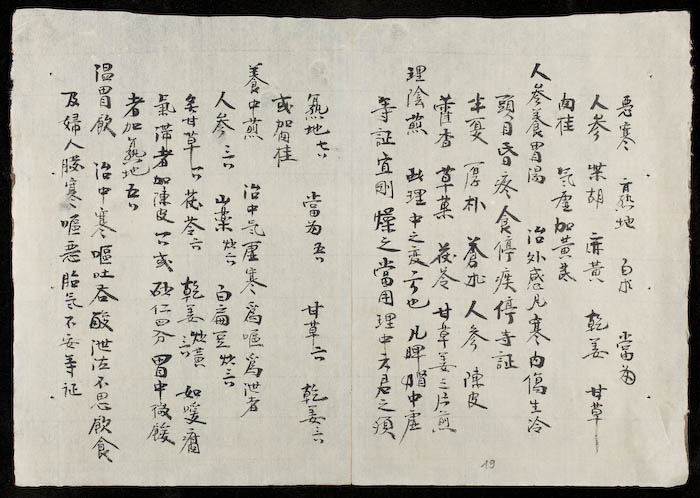 惡寒 熟地 白朮 當為
人參 柴胡 麻黃 乾姜 甘草
肉桂 氣虛加黃芪
人參養胃湯 治外感凡寒內傷生冷
頭目昏疼食停痰停等証
半夏 厚朴 蒼朮 人參 陳皮
藿香 草菓 茯苓 甘草姜三片煎
理陰煎 此理中之變方也 凡脾腎中虛
等証宜剛燥之當用理中六君之須
19
熟地七 當為五 甘草二 乾姜三
或加肉桂
養中煎 治中氣虛寒為嘔為泄者
人參三 山藥炒二 白扁豆炒三
炙甘草一 茯苓二 乾姜炒黃二 如噯腐
氣滯者加陳皮一 或砂仁四分 胃中微餒
者加熟地五
溫胃飲 治中寒嘔吐吞酸泄泣不思飲食
及婦人臟寒嘔惡胎氣不安等証